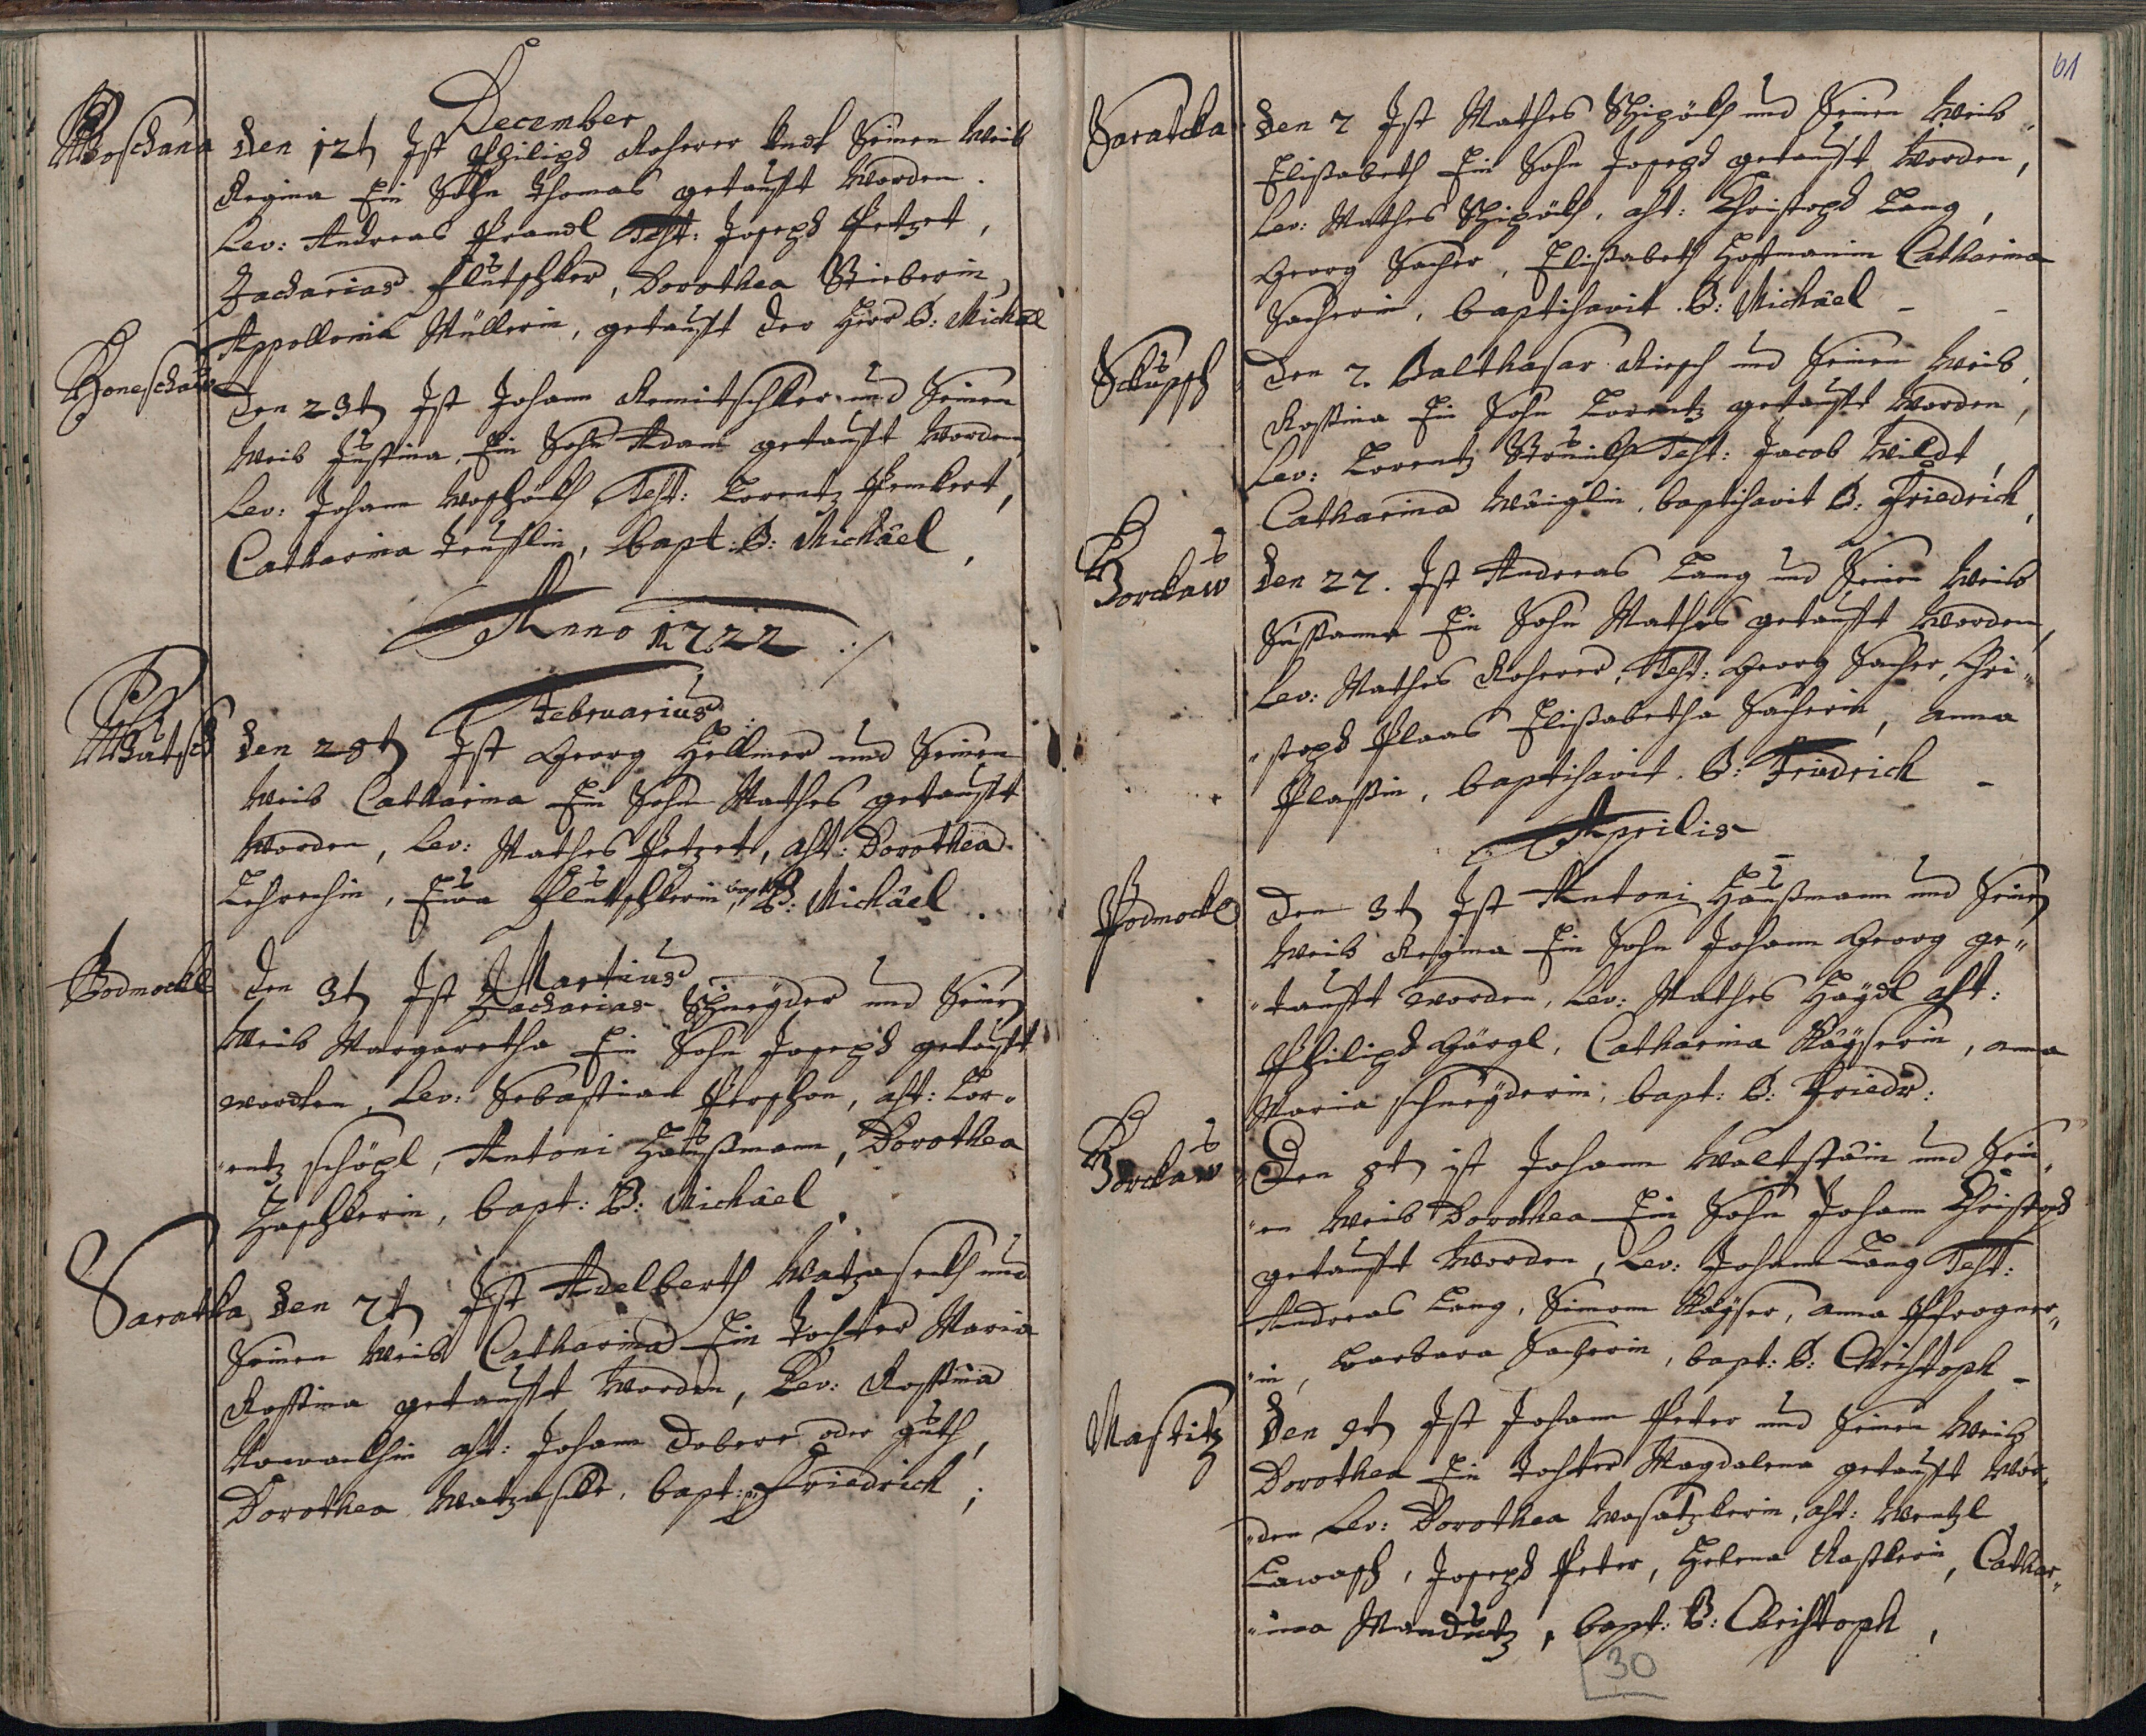 December
Woschana Den 12t Ist Philipp Roherer Undt Seinen Weib
Regina Ein Sohn Thomas getaufft Worden.
Lev: Andreas Prandl Test: Joseph Petzet,
Zacharias Flutschker, Dorothea Stieberin,
Appollonia Müllerin, getaufft der Herr P: Michäel
Boneschau Den 23t Ist Johann Remitschker und Seinen
Weib Justina, Ein Sohn Adam getaufft Worden,
Lev: Johann Test: Lorentz Pemkert,
Catharina, bapt: P: Michäel,
Anno 1722 ./
Februarius
Den 28t Ist Georg Hellmer und Seinen
Weib Catharina Ein Sohn Mathes getaufft
Worden, Lev: Mathes Petzet, ast: Dorothea
Eva Flutschkerin, bapt P: Michäel.
Martius
Podmockl Den 3t Ist Zacharias Schneyder und Seinen
Weib Margaretha Ein Sohn Joseph getaufft
worden, Lev: Sebastian ast: Lor„
„entz schöpl, Antoni Haußmann, Dorothea
Haschkerin, bapt: P: Michäel.
Saratka Den 7t Ist Adelberth und
Seinen Weib Catharina Ein Tochter Maria
Rossina getaufft Worden, Lev: Rossina
ast: Johann oder Guth,
Dorothea, bapt: P Friedrich;
61
Saratcka Den 7 Ist Mathes und Seinen Weib
Elisabeth Ein Sohn Joseph getaufft Worden,
Lev: Mathes, ast: Christoph Lang,
Georg Sacher, Elisabeth Hoffmanin Catharina
Sacherin, baptisavit P: Michäel –
Den 7. Balthasar und Seinen Weib
Rossina Ein Sohn Lorentz getaufft Worden,
Lev: Lorentz Test: Jacob Wildt,
Catharina, baptisavit P: Friedrich,
Borckaw Den 27. Ist Andreas Lang und Seinen Weib
Susanna Ein Sohn Mathes getaufft Worden,
Lev: Mathes Roherer, Test: Georg Sacher, Chri„
„stoph Plaas Elisabetha Sacherin, anna
Plassin, baptisavit P: Friedrich –
Aprilis
Podmockl Den 3t Ist Antoni Haußmann und Seinen
Weib Regina Ein Sohn Johann Georg ge„
„taufft worden, Lev: Mathes Haydl ast:
Philipp Görgl, Catharina Kayserin, anna
Maria schneyderin, bapt: P: Friedr:
Borckaw Den 8t ist Johann Waltstain und Sein„
„en Weib Dorothea Ein Sohn Johann Christoph
getaufft Worden, Lev: Johann Lang Test:
Andreas Lang, Simon Kayser, anna Pfrogner„
„in, Barbara Sacherin, bapt: P: Christoph –
Mastitz Den 9t Ist Johann Peter und Seinen Weib
Dorothea Ein Tochter Magdalena getaufft Wor„
„den Lev: Dorothea, ast: Wentzl
Joseph Peter, Helena, Cathar„
„ina, bapt: P: Christoph,
30